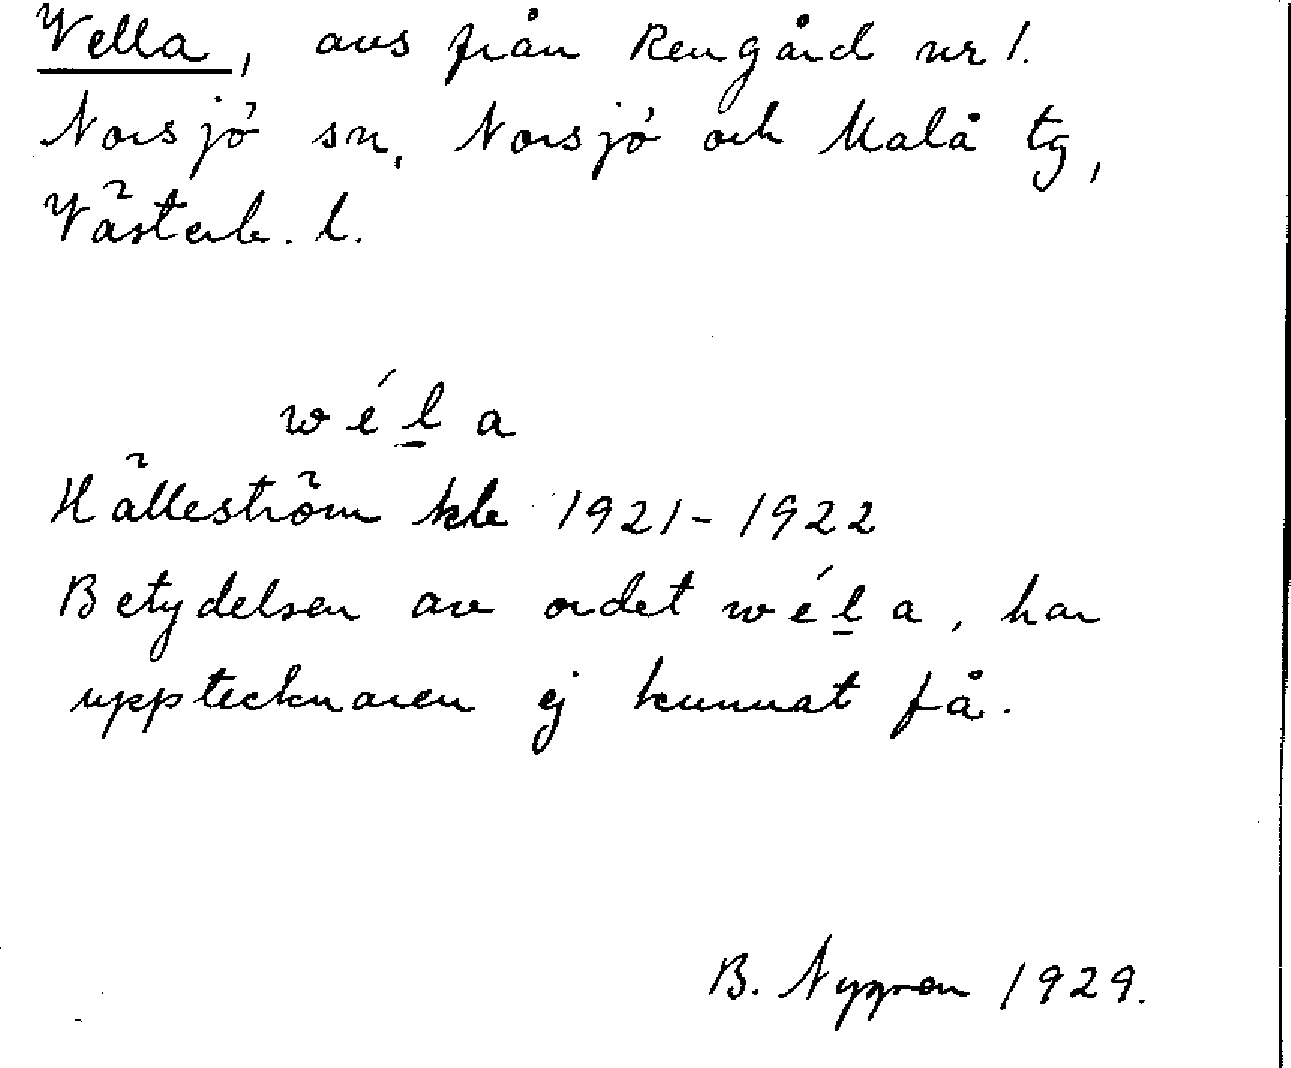 Vella, avs från Rengård nr 1.
Norsjö sn, Norsjö och Malå tg,
Västerb. l.
wéḻa
Hälleström kbl 1921-1922
Betydelsen av ordet wéḻa, har
upptecknaren ej kunnat få.
B. Nygren 1929.